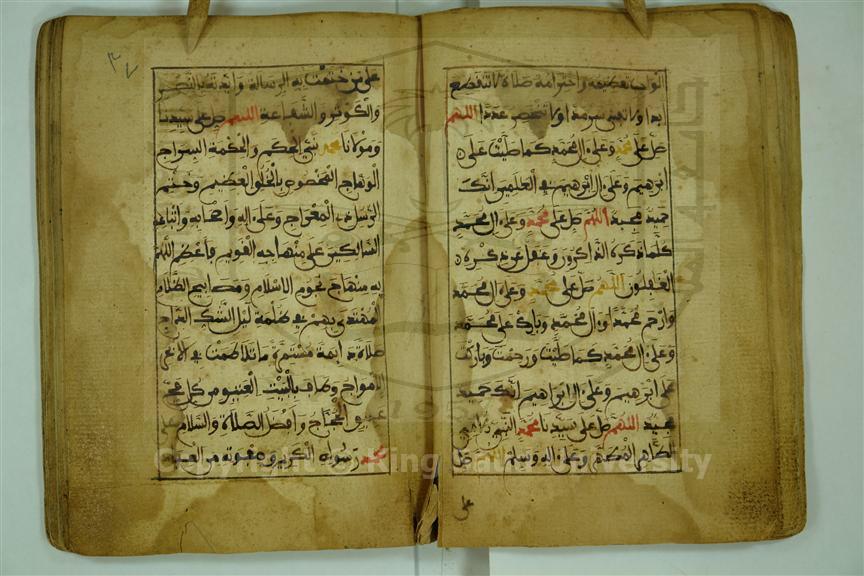 الواجب تعظيمه واحترامه صلاة لا تنقطع
ابدا ولا تفنى سرمدا ولا تنحصر عددا اللهم
صل على محمد وعلى ال محمد كما صليت على
ابراهيم وعلى ال ابراهيم في العلمين انك
حميد مجيد اللهم صل على محمد وعلى ال محمد
كلما ذكره الذاكرون وغفل عن ذكره
الغفلون اللهم صل على محمد وعلى ال محمد
وارحم محمدا وال محمد وبارك على محمد
وعلى ال محمد كما صليت ورحمت وباركت
على ابراهيم وعلى ال ابراهيم انك حميد
مجيد اللهم صل على سيدنا محمد النبي
الطاهر المطهر وعلى اله وسلم اللهم صل
على
على من ختمت به الرسالة وايدته بالنصر
والكوثر والشفاعة اللهم صل على سيدنا
ومولانا محمد نبي الحكم والحكمة السراج
الوهاج المخصوص بالخلق العظيم وختم
الرسل ذي المعراج وعلى اله واصحابه واتباعه
السالكين على منهاجه القويم فاعظم اللهم
به منهاج نجوم الاسلام ومصابيح الظلام
المهتدى بهم في ظلمة ليل الشك الداج
صلاة دايمة مستمرة ما تلاطمت في الابحر
الامواج وطاف بالبيت العتيق من كل فج
عميق الحجاج وافضل الصلاة والسلام على
محمد رسوله الكريم وصفوته من العباد
Copyright © King Saud University